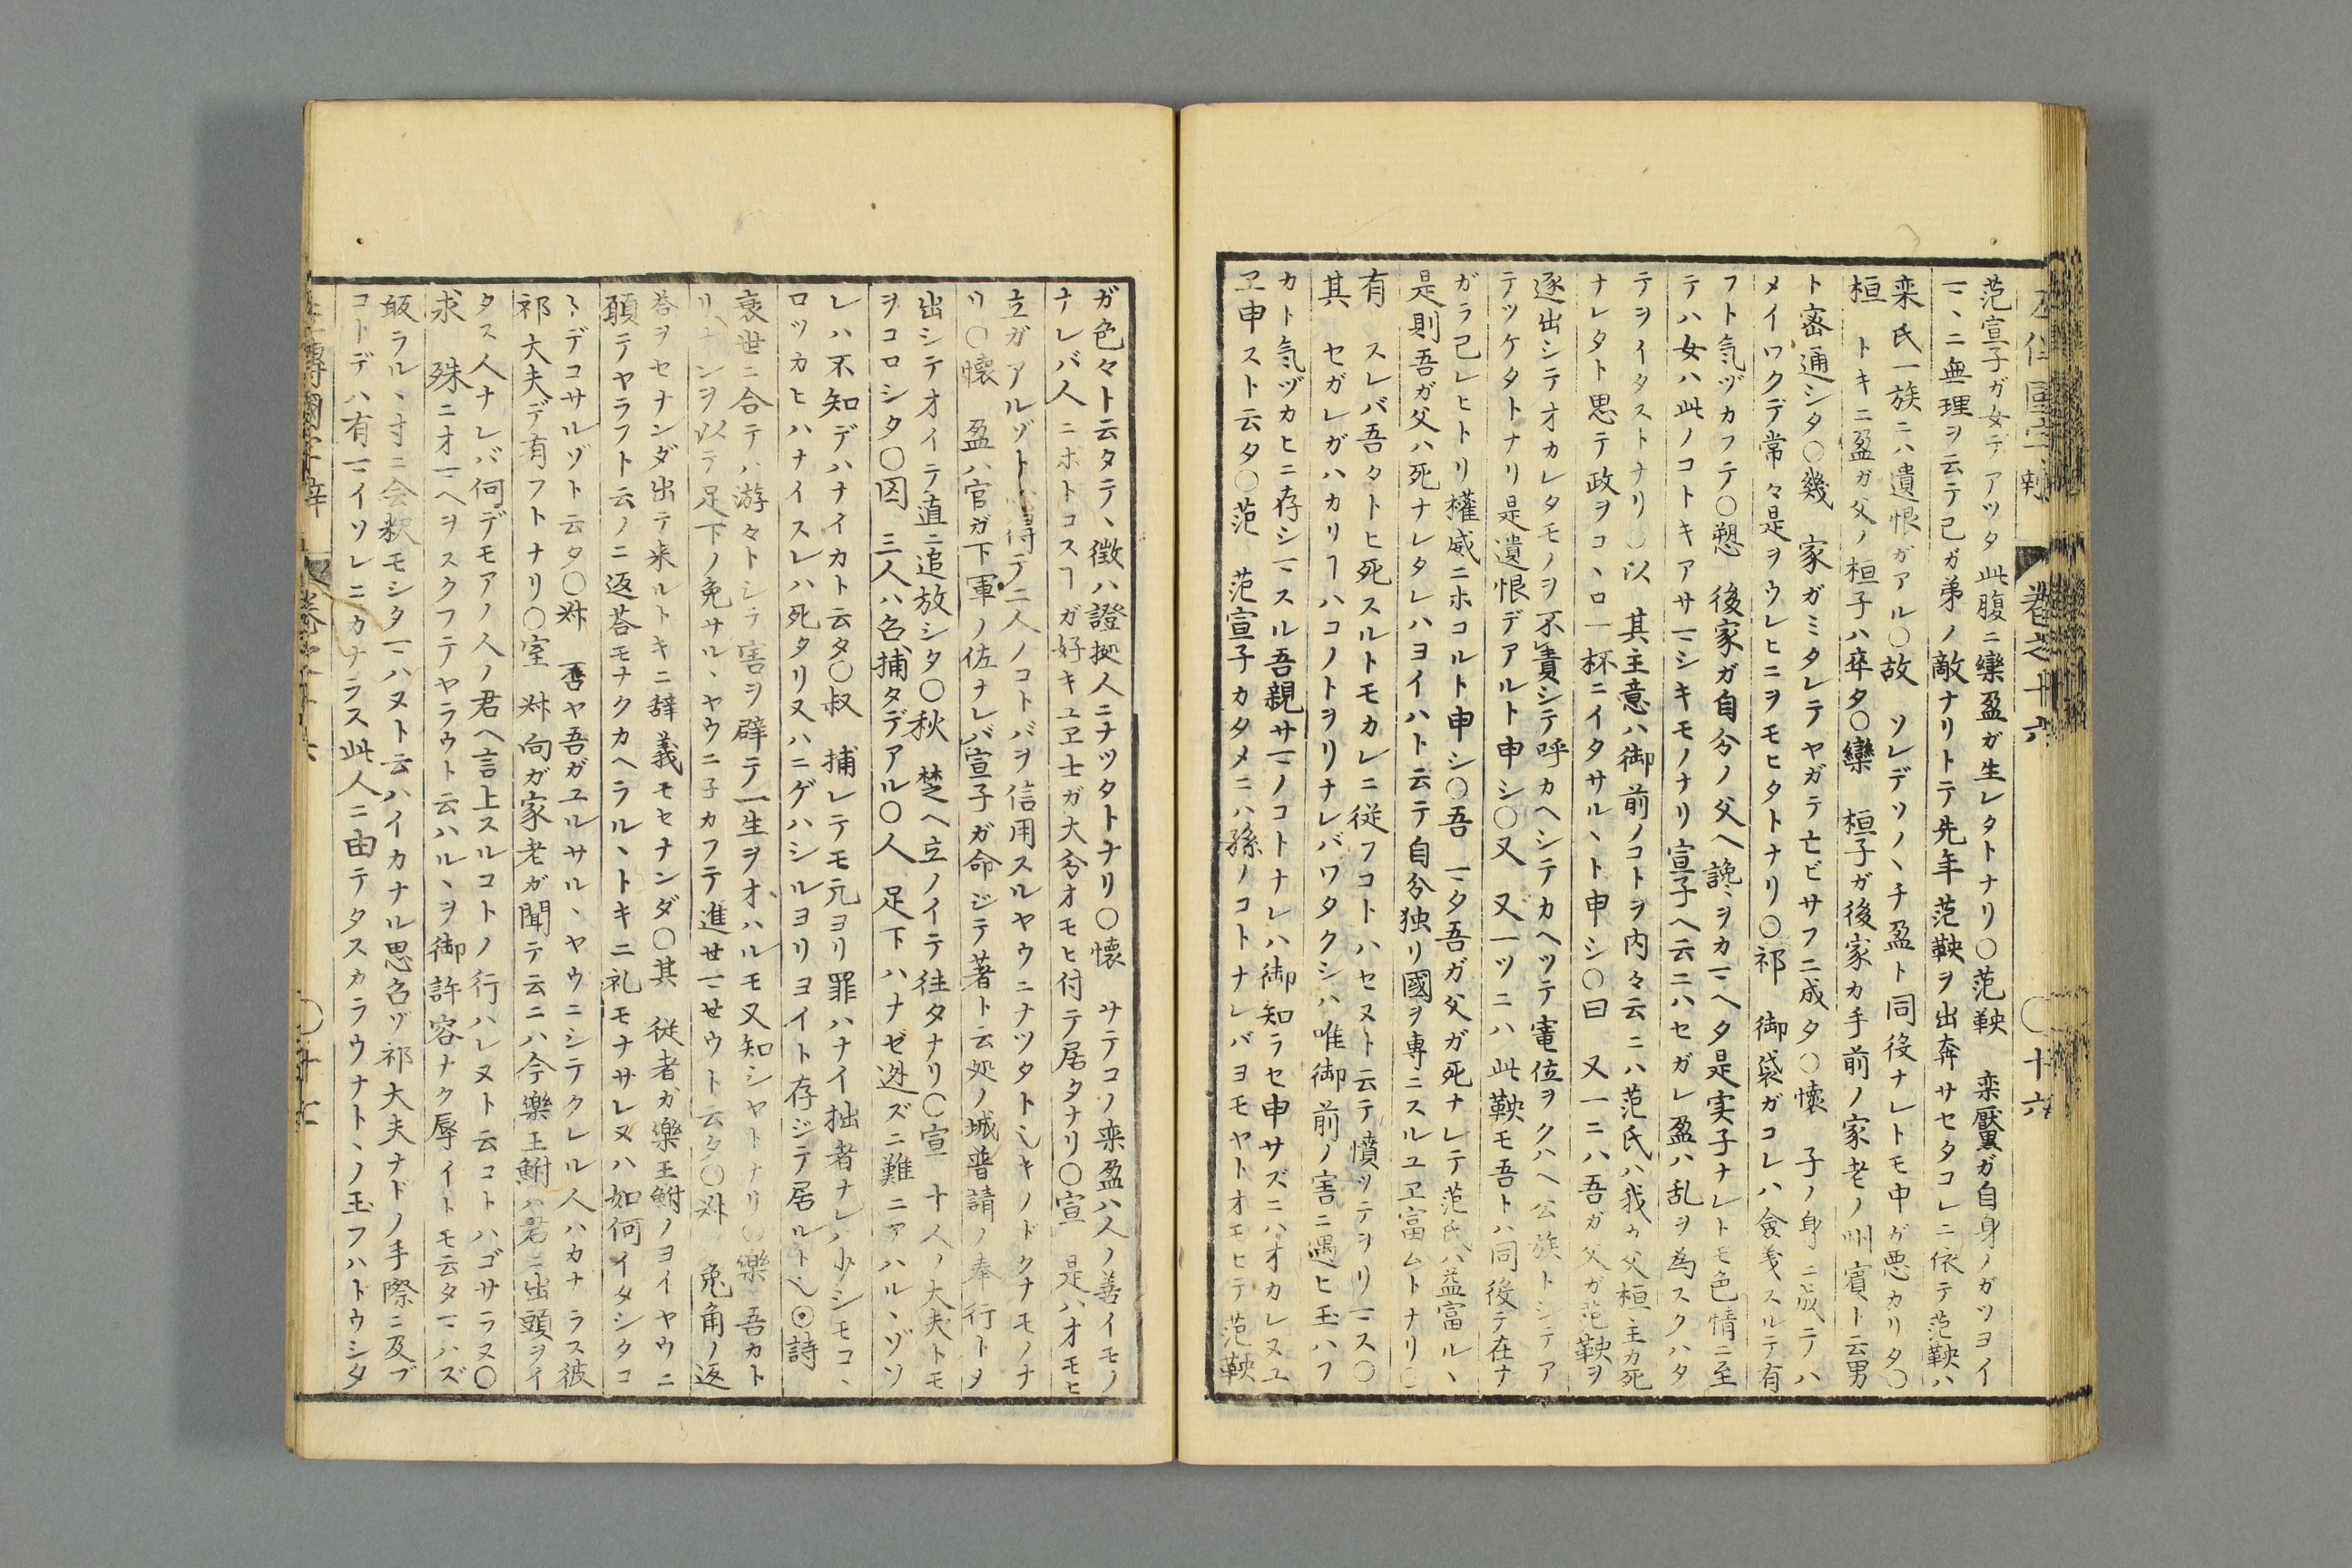 范宣子ガ女デアツタ此腹ニ欒盈ガ生レタトナリ〇范鞅　栾黶ガ自身ノガツヨイ
マヽニ無理ヲ云テ己ガ弟ノ敵ナリトテ先年范鞅ヲ出奔サセタコレニ依テ范鞅ハ
栾氏一族ニハ遺恨ガアル〇故　ソレデソノヽチ盈ト同役ナレトモ中ガ悪カリタ〇
桓　トキニ盈ガ父ノ桓子ハ卒タ〇欒　桓子ガ後家カ手前ノ家老ノ州賓ト云男
ト密通シタ〇幾　家ガミタレテヤガテ亡ビサフニ成タ〇懐　子ノ身ニ成テハ
メイワクデ常々是ヲウレヒニヲモヒタトナリ〇祁　御袋ガコレハ僉義スルテ有
フト気ヅカフテ〇愬　後家ガ自分ノ父ヘ讒ヲカマヘタ是実子ナレトモ色情ニ至
テハ女ハ此ノコトキアサマシキモノナリ宣子ヘ云ニハセガレ盈ハ乱ヲ為スクハタ
テヲイタストナリ〇以　其主意ハ御前ノコトヲ内々云ニハ范氏ハ我カ父桓主カ死
ナレタト思テ政ヲコヽロ一杯ニイタサルヽト申シ〇曰　又一ニハ吾ガ父ガ范鞅ヲ
逐出シテオカレタモノヲ不責シテ呼カヘシテカヘツテ寵位ヲクハヘ公族トシテア
テツケタトナリ是遺恨デアルト申シ〇又　又一ツニハ此鞅モ吾トハ同役テ在ナ
ガラ己レヒトリ權威ニホコルト申シ〇吾　マタ吾ガ父ガ死ナレテ范氏ハ益富ルヽ
是則吾ガ父ハ死ナレタレハヨイハト云テ自分独リ國ヲ専ニスルユヱ富ムトナリ〇
有　スレバ吾タトヒ死スルトモカレニ従フコトハセヌト云テ憤ツテヲリマス〇
其　セガレガハカリヿハコノトヲリナレバワタクシハ唯御前ノ害ニ遇ヒ玉ハフ
カト気ヅカヒニ存シマスル吾親サマノコトナレハ御知ラセ申サズニハオカレヌユ
ヱ申スト云タ〇范　范宣子カタメニハ孫ノコトナレバヨモヤトオモヒテ范鞅
巻之十六
〇十六
ガ色々ト云タテヽ徴ハ證拠人ニナツタトナリ〇懐　サテコノ栾盈ハ人ノ善イモノ
ナレバ人ニホトコスヿガ好キユヱ士ガ大分オモヒ付テ居タナリ〇宣　是ハオモヒ
立ガアルゾト心得テ二人ノコトバヲ信用スルヤウニナツタトレキノドクナモノナ
リ〇懐　盈ハ官ガ下軍ノ佐ナレバ宣子ガ命ジテ著ト云処ノ城普請ノ奉行トタ
出シテオイテ直ニ追放シタ〇秋　楚ヘ立ノイテ往タナリ〇宣　十人ノ大夫トモ
ヲコロシタ〇囚　三人ハ召捕タデアル〇人　足下ハナゼ迯ズニ難ニアハルヽゾソ
レハ不知デハナイカト云タ〇叔　捕レテモ元ヨリ罪ハナイ拙者ナレハ少シモコヽ
ロツカヒハナイスレハ死タリ又ハニゲハシルヨリヨイト存ジテ居ルト〇詩
衰世ニ合テハ游々トシテ害ヲ辟テ一生ヲオハルモ又知シヤトナリ〇樂　吾カト
リナシヲ以テ足下ノ免サルヽヤウニ子カフテ進セマセウト云タ〇対　兎角ノ返
荅ヲセナンダ出テ来ルトキニ辞義モセナンダ〇其　従者ガ樂王鮒ノヨイヤウニ
願テヤラフト云ノニ返荅モナクカヘラルヽトキニ礼モナサレヌハ如何イタシタコ
トデコサルゾト云タ〇対　否ヤ吾ガユルサルヽヤウニシテクレル人ハカナラス彼
祁大夫デ有フトナリ〇室　対向ガ家老ガ聞テ云ニハ今樂王鮒ハ君ニ出頭ヲイ
タス人ナレバ何デモアノ人ノ君ヘ言上スルコトノ行ハレヌト云コトハゴサラヌ〇
求　殊ニオマヘヲスクフテヤラウト云ハルヽヲ御許容ナク辱イトモ云タマハズ
皈ラルヽ寸ニ会釈モシタマハヌト云ハイカナル思召ゾ祁大夫ナドノ手際ニ及ブ
コトデハ有マイソレニカナラス此人ニ由テタスカラウナトヽノ玉フハドウシタ